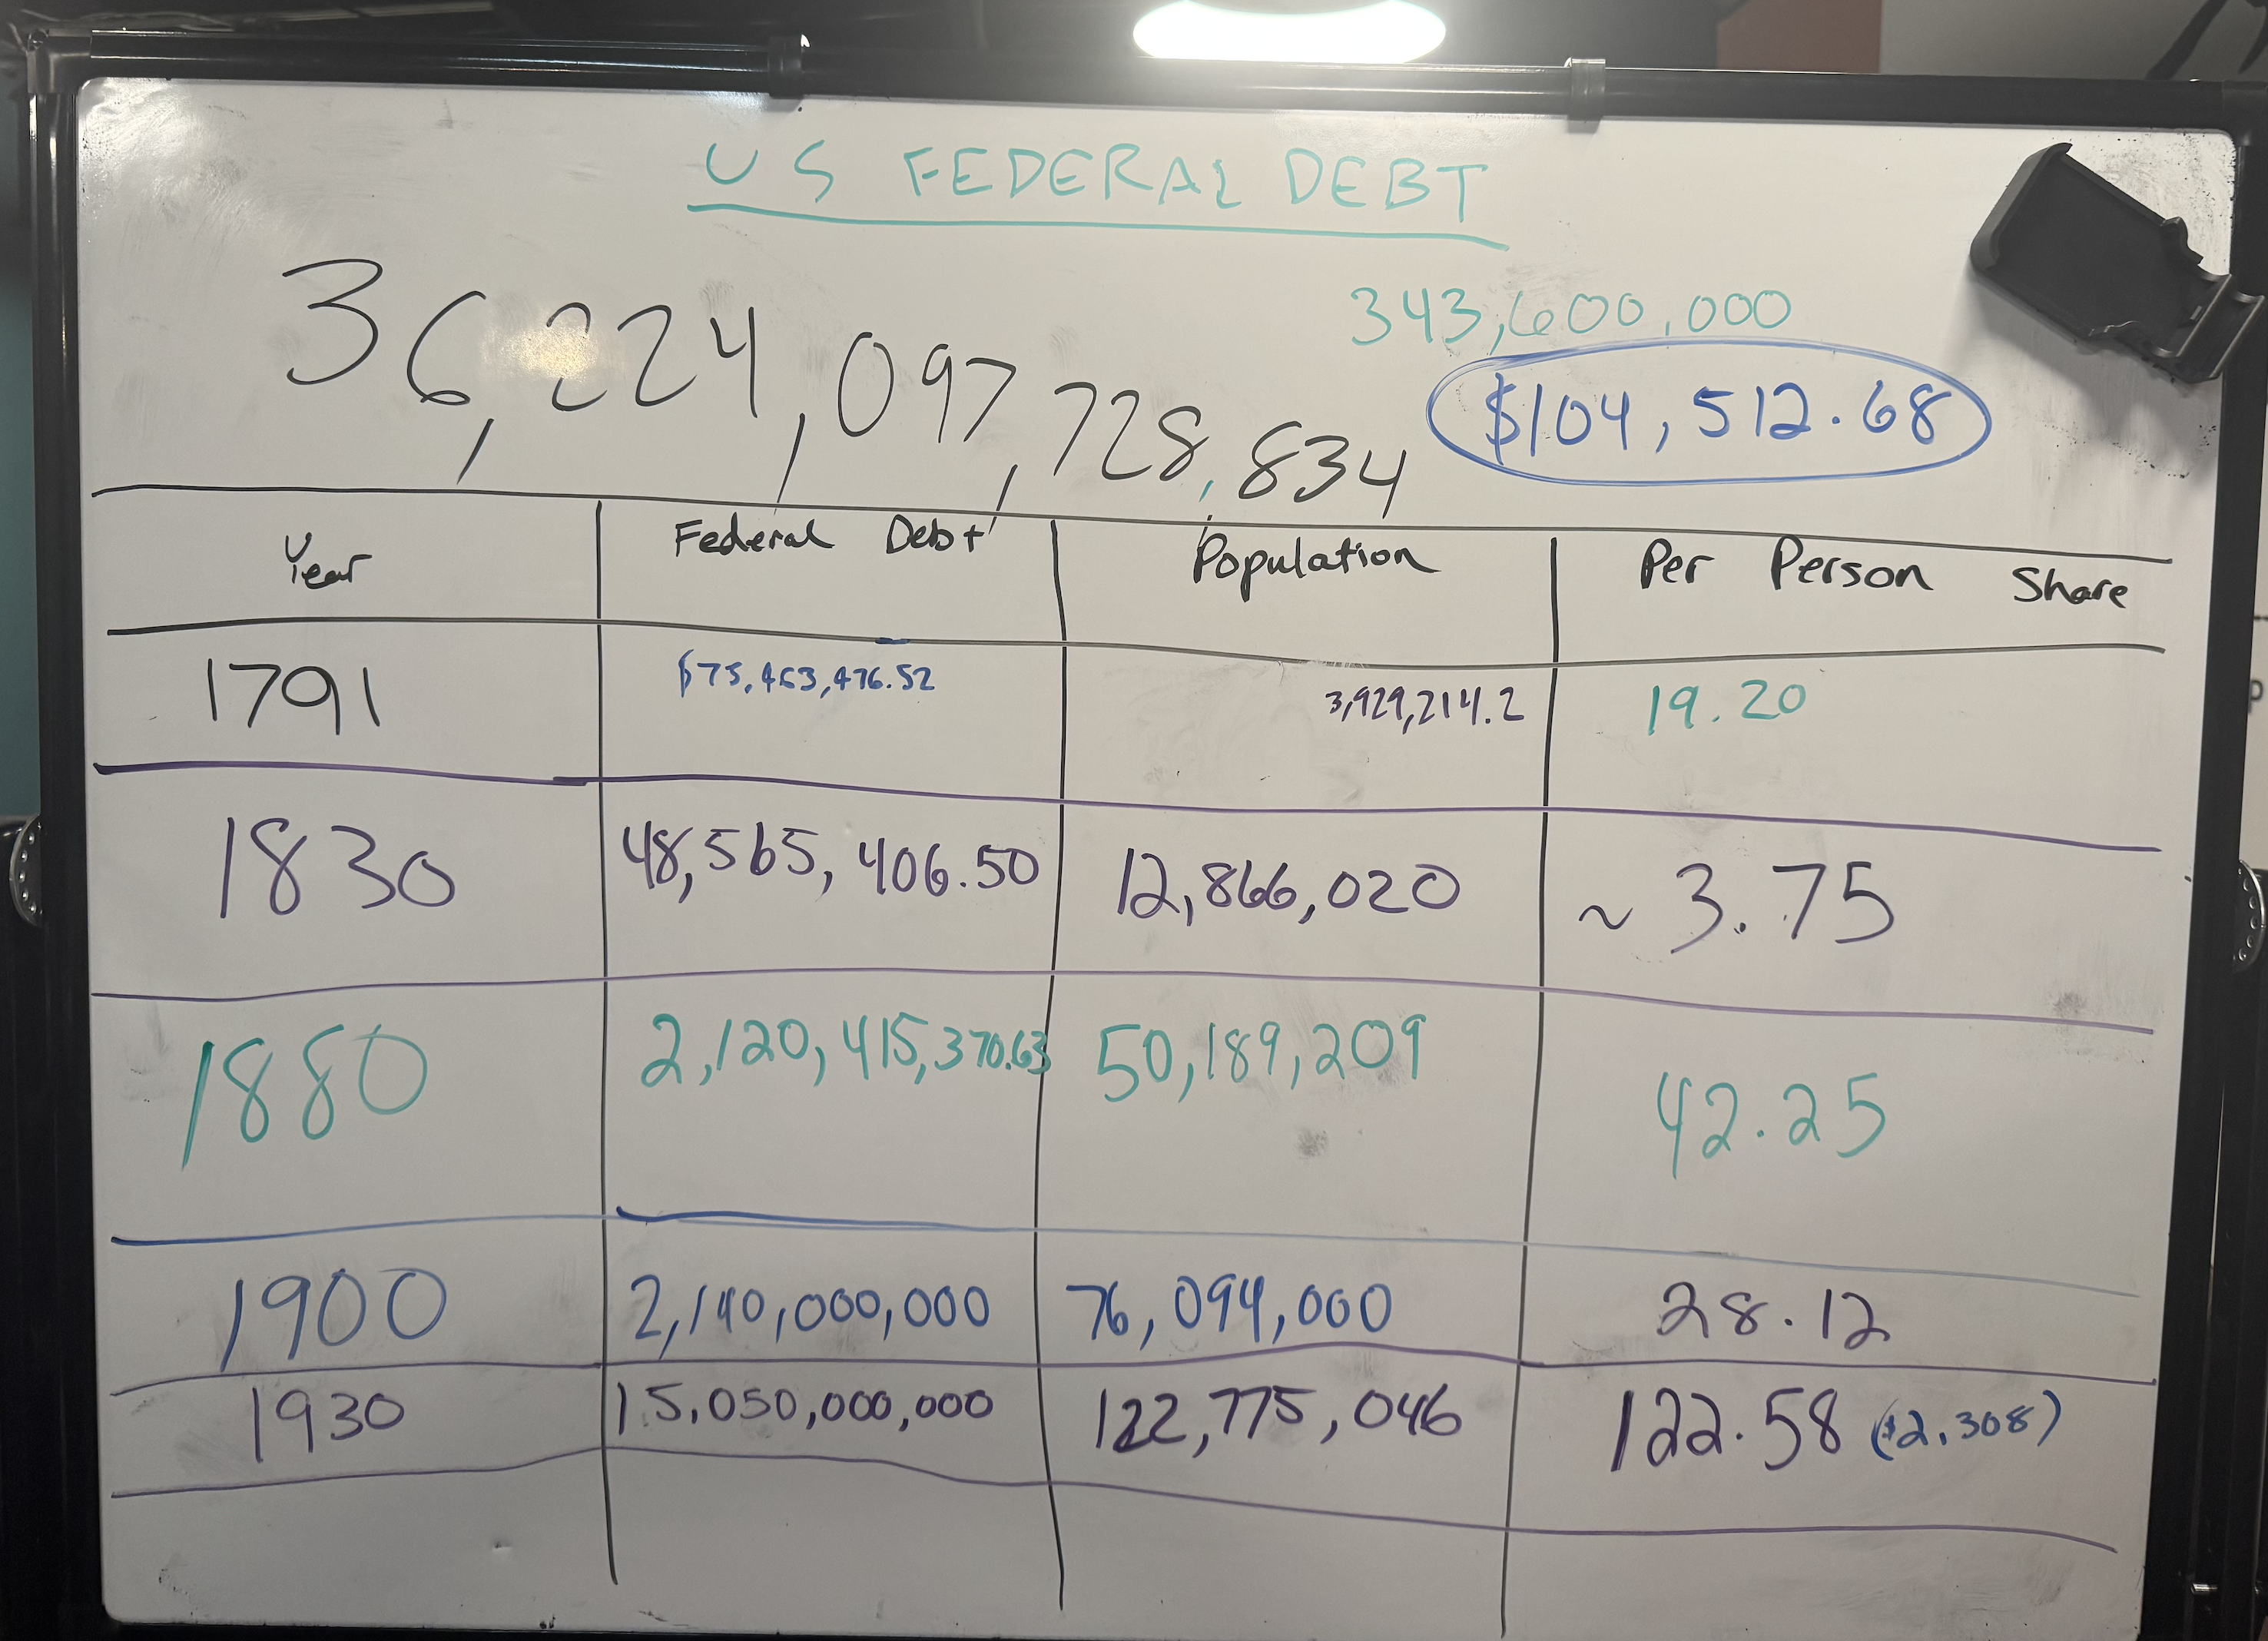 US FEDERAL DEBT
343,600,000
36,224,097,728,834
$104,512.68
Year Federal Debt Population Per Person Share
1791 $75,463,476.52 3,929,214.2 19.20
1830 48,565,406.50 12,866,020 ~ 3.75
1880 2,120,415,370.63 50,189,209 42.25
1900 2,140,000,000 76,094,000 28.12
1930 15,050,000,000 122,775,046 122.58 ($2,308)